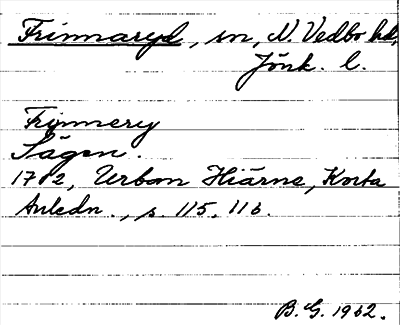 Frinnaryd, sn, N. Vedbo hd,
Jönk. l.
Frinnery
Sägen.
1702, Urban Hiärne, Korta
Anledn., s. 115, 116.
B. G. 1962.